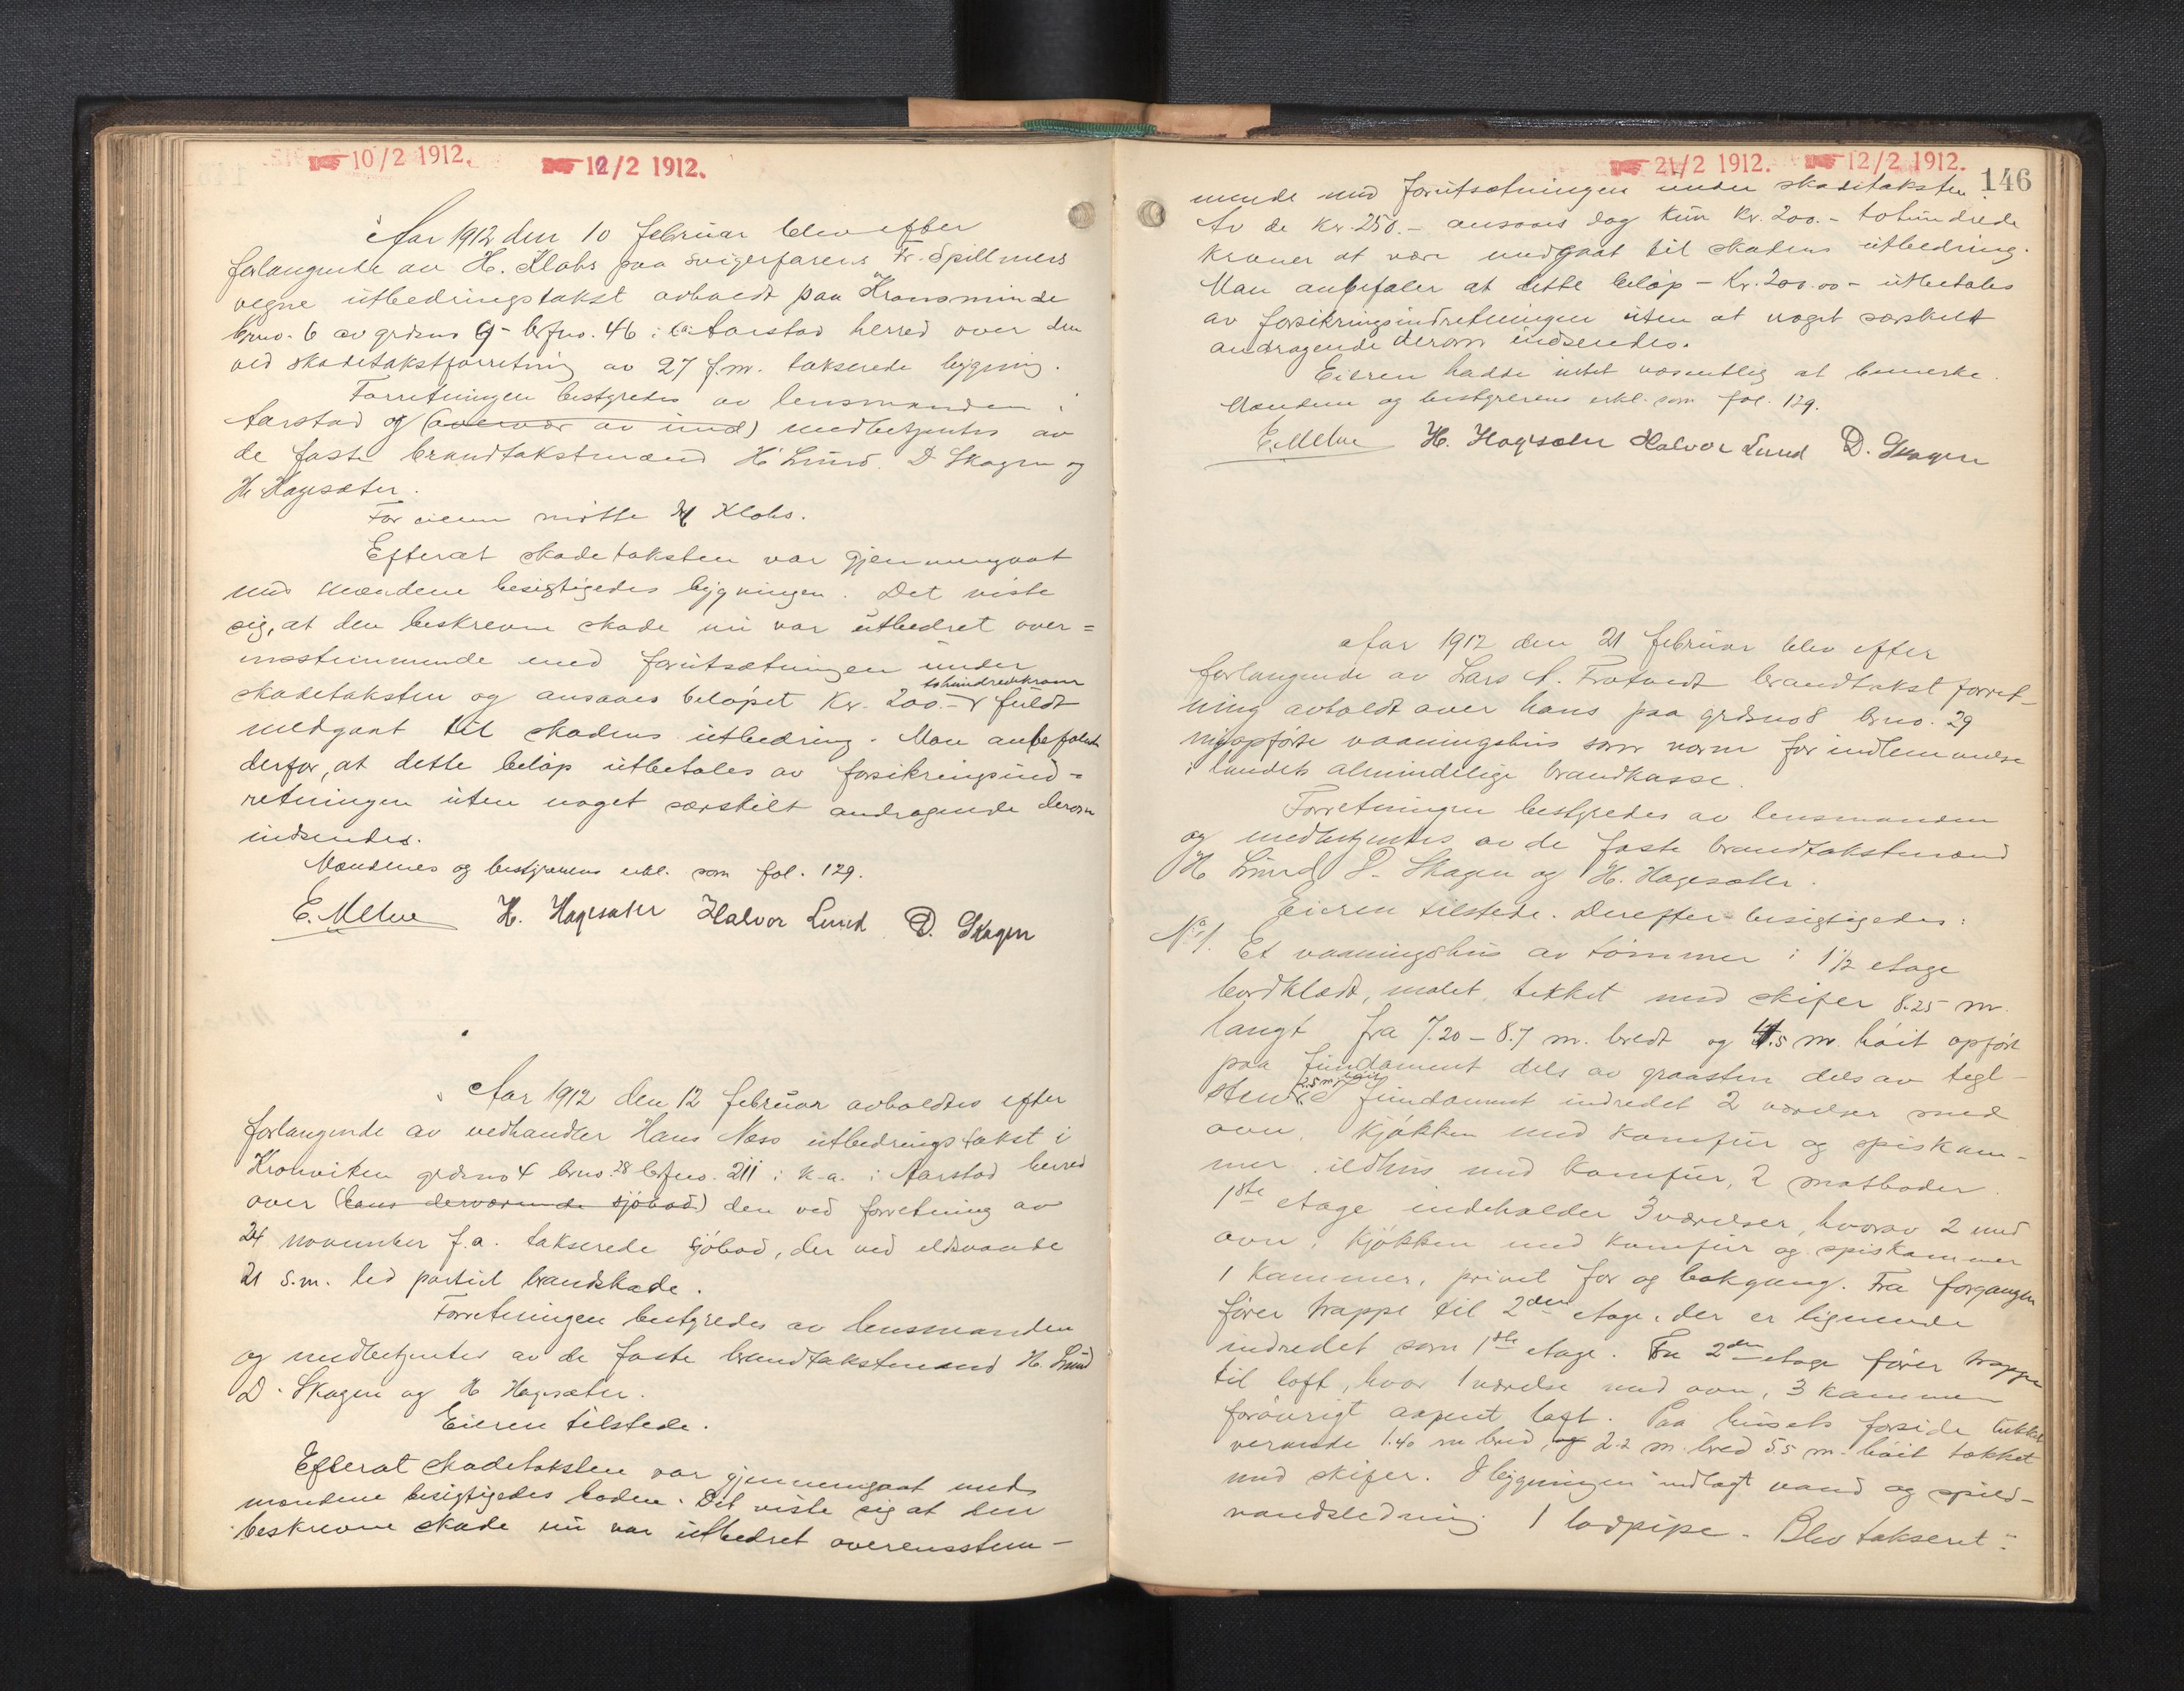 10/2 1912. 12/2 1912.
Aar 1912 den 10 februar blev efter
forlangende av H. Klohs paa svigerfarens Fr. Spillmers
vegne utbedringstakst avholdt paa Kronsminde
brno. 6 av grdsno 9 - brfno. 46 i Aarstad herred over den
ved skadetakstforretning av 27 f.m. takserede bygning.
Forretningen bestyredes av lensmanden i
Aarstad og (overvær av und) medbetjentes av
de faste brandtakstmænd H. Lund, D. Skagen og
H. Hagesæter.
For eieren møtte H Klohs.
Efterat skadetaksten var gjennemgaat
med mændene besigtigedes bygningen. Det viste
sig, at den beskrevne skade nu var utbedret over=
insstemmende med forutsætningen under
skadetaksten og ansaaes beløpet Kr. 200.- tohundredekroner fuldt
medgaat til skadens utbedring. Man anbefaler
derfor, at dette beløp utbetales av forsikringsind=
retningen uten noget særskilt andragende derom
indsendes.
Mændenes og bestyrerens erkl. som fol. 129.
E. Melve H. Hagesæter Halvor Lund D. Skagen
Aar 1912 den 12 februar avholdtes efter
forlangende av vedhandler Hans Næss utbedringstakst i
Kronviken grdsno 4 brno. 28 brfno. 211 i k.a. i Aarstad herred
over (hans derværende sjøbod) den ved forretning av
24 november f.a. takserede sjøbod, der ved eldsvaade
21 s.m. led partiel brandskade.
Forretningen bestyredes av lensmanden
og medbetjentes av de faste brandtakstmænd H. Lund
D. Skagen og H Hagesæter.
Eieren tilstede.
Efterat skadetaksten var gjennemgaat med
mændene besigtigedes boden. Det viste sig at den
beskrevne skade nu var utbedret overensstem-
21/2 1912. 12/2 1912. 146
mende med forutsætningen under skadetaksten
Av de Kr. 250.- ansaaes dog kun Kr. 200.- tohundrede
kroner at være medgaat til skadens utbedring.
Man anbefaler at dette beløp - Kr. 200.00 - utbetales
av forsikringsindretningen uten at noget særskilt
andragende derom indsendes.
Eieren hadde intet væsentlig at bemerke.
Mændenes og bestyrerens erkl. som fol. 129.
E. Melve H. Hagesæter Halvor Lund D. Skagen
Aar 1912 den 21 februar blev efter
forlangende av Lars A. Trotvedt brandtakst forret-
ning avholdt over hans paa grdsno 8 brno. 29
nyopførte vaaningshus som norm for indlemmelse
i landets almindelige brandkasse.
Forretningen bestyredes av lensmanden
og medbetjentes av de faste brandtakstmænd
H Lund D. Skagen og H. Hagesæter.
Eieren tilstede. Derefter besigtigedes:
No 1. Et vaaningshus av tømmer i 1 1/2 etage
bordklædt, malet, tekket med skifer 8.25 m.
langt fra 7.20 - 8.7 m. bredt og 4.5 m. høit opført
paa fundament dels av graasten dels av tegl
sten 2.5 m høit I fundament indredet 2 værelser med
ovn, kjøkken med komfur og spiskam-
mer, ildhus med komfur, 2 matboder.
1ste etage indeholder 3 værelser, hvorav 2 med
ovn, kjøkken med komfur og spiskammer
1 kammer, privet for og bakgang. Fra forgangen
fører trappe til 2den etage, der er lignende
indredet som 1ste etage. Fra 2den etage fører trappe
til loft, hvor 1 værelse med ovn, 3 kammer
forøvrigt aapent loft. Paa husets forside lukket
veranda 1.40 m bred, og 2.2 m. bred 5.5 m. høit tækket
med skifer. I bygningen indlagt vand og spild-
vandsledning. 1 lodpipe. Blev takseret: